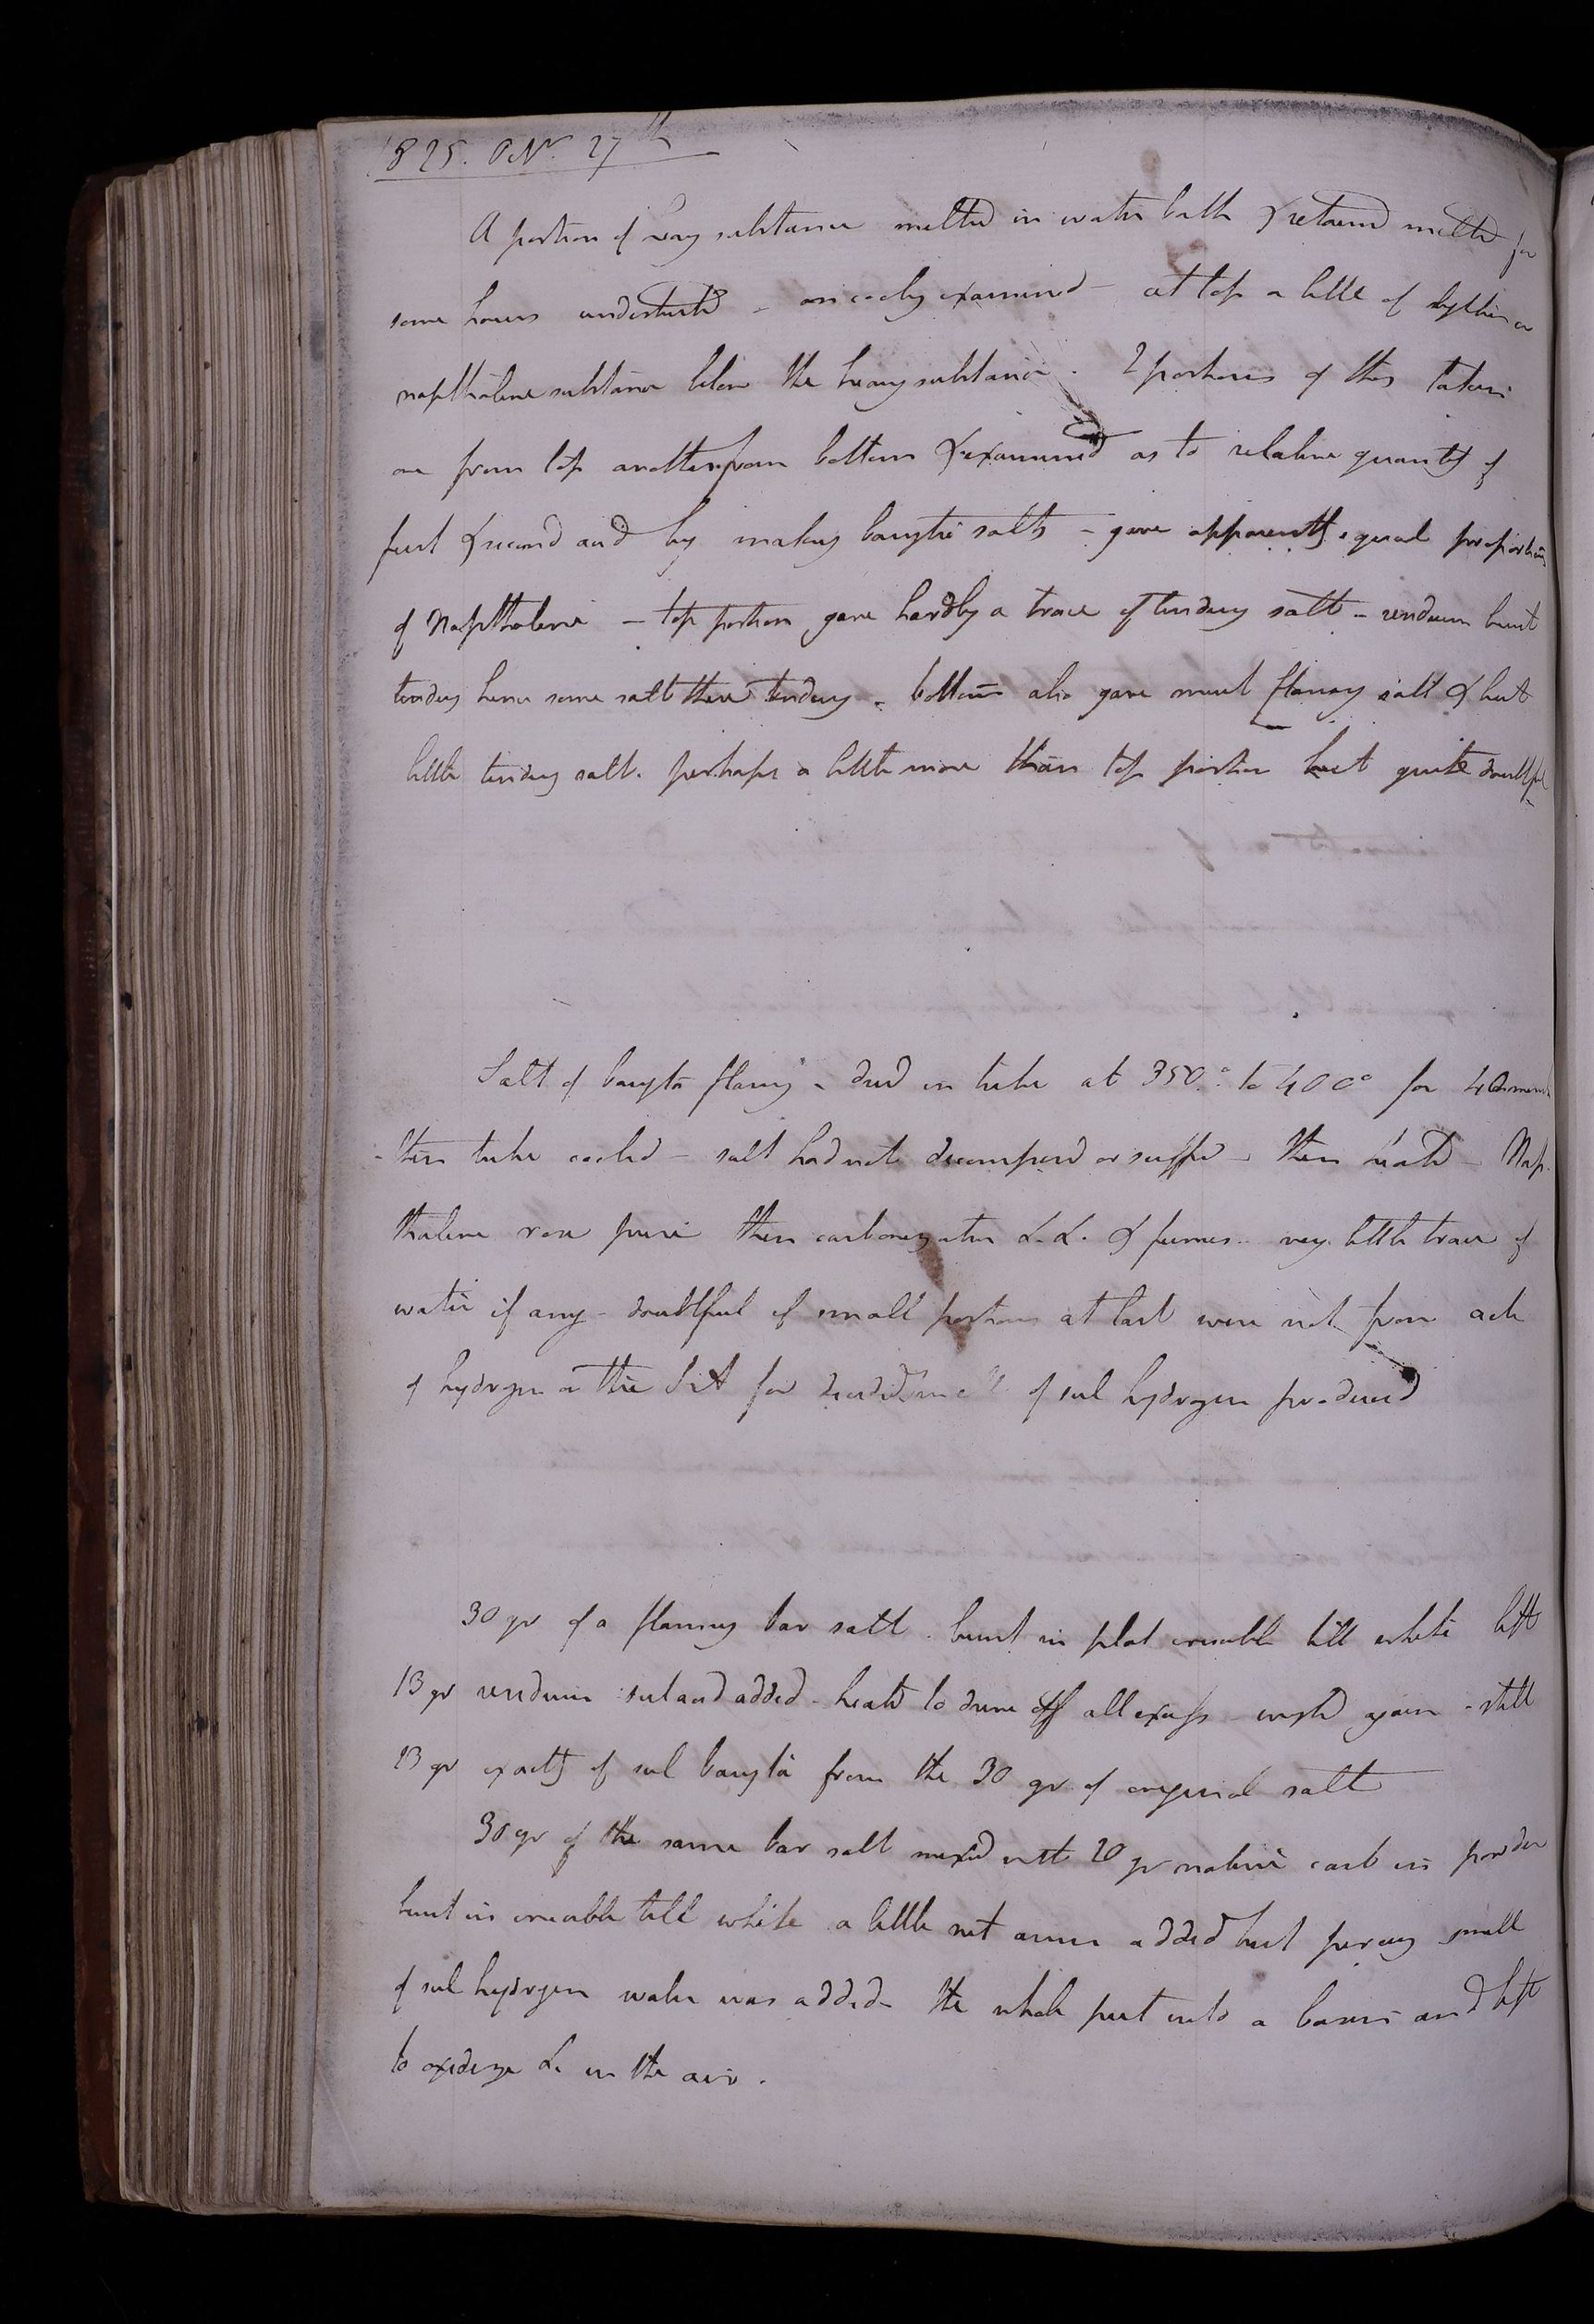 1825. Oct. 27th
A portion of heavy substance melted in water bath & retained melted for
some hours undisturbed - on cooling examined - at top a little of lighter or
napthaline substance below the heavy substance. 2 portions of this taken
one from top another from bottom & examined as to relative quantity of
first & second acid by making barytic salts - gave apparently equal proportions
of Napthaline - top portion gave hardly a trace of tindery salt - residuum burnt
tindery hence some salt there tindery - bottom also gave much flamey salt & but
little tindery salt. perhaps a little more than top portion but quite doubtful
Salt of baryta flamy - dried in tube at 350° to 400° for
then tube cooled - salt had not decomposed or suffd - then heated - Nap-
thaline rose pure then carboney matter &c. &c. & fumes - very little trace of
water if any - doubtful if small portions at last were not from acts
of hydrogen on the for decided smell of sul hydrogen produced
30 gr of a flaming bar salt. burnt in plat crucible till white left
13 gr residuum sul acid added - heated to drive off all excess - weighd again - still
13 gr exactly of sul baryta from the 30 gr of original salt
30 gr of the same bar salt mixed with 20 gr native carb in powder
burnt in crucible till white a little nit ammon added but perceiving smell
of sul hydrogen water was added - the whole put into a basin and left
to oxidize &c in the air.